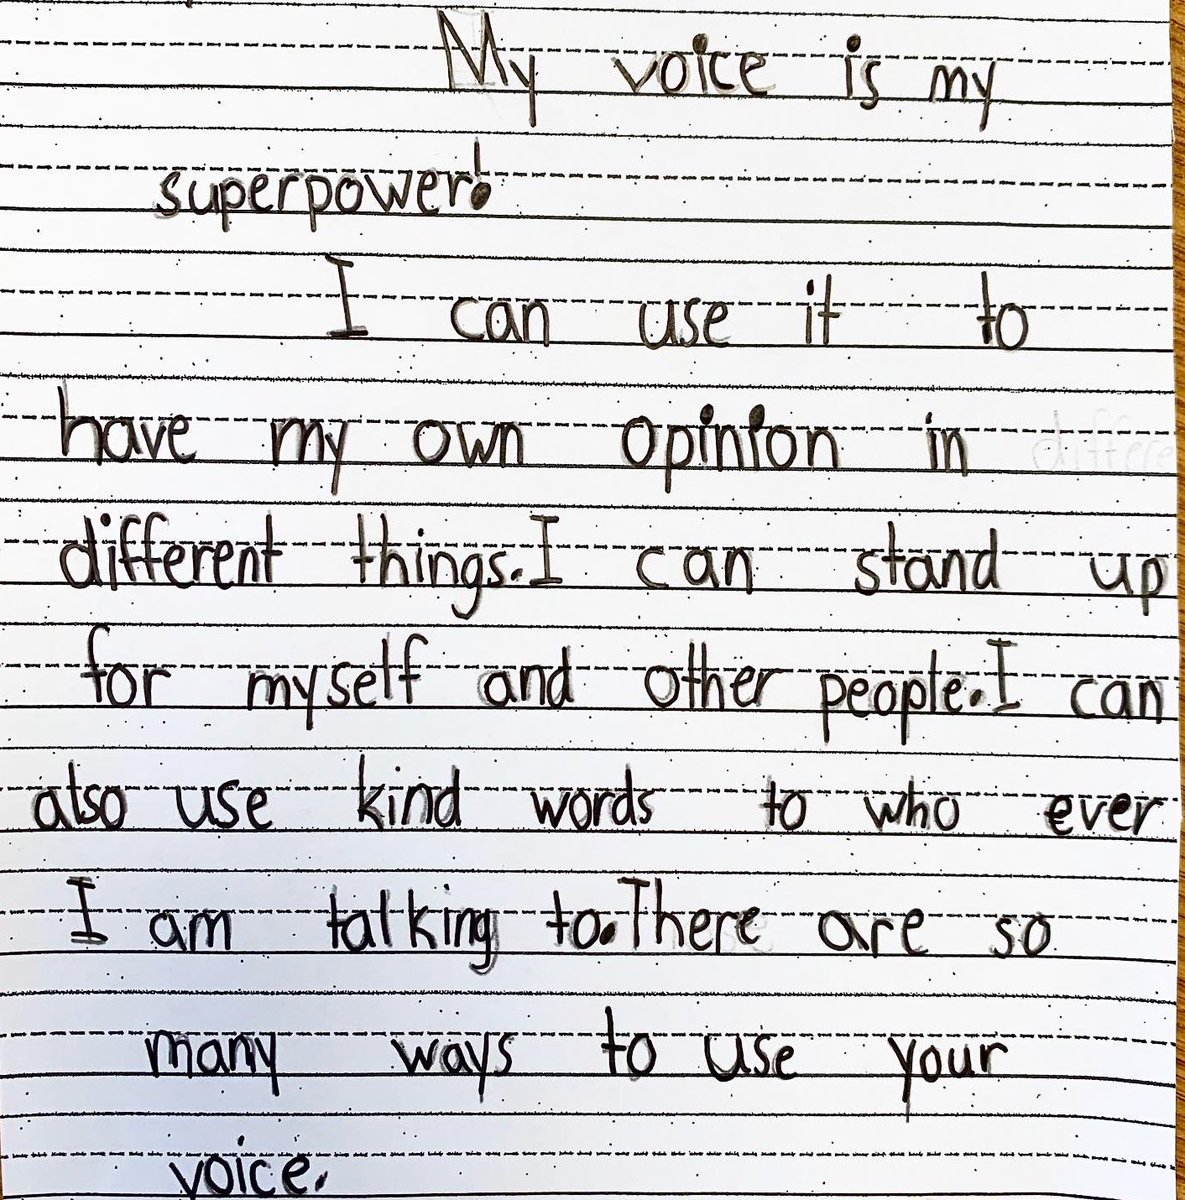 My voice is my
superpower!
I can use it to
have my own opinion in differe
different things. I can stand up
for myself and other people. I can
also use kind words to who ever
I am talking to. There are so
many ways to use your
voice.